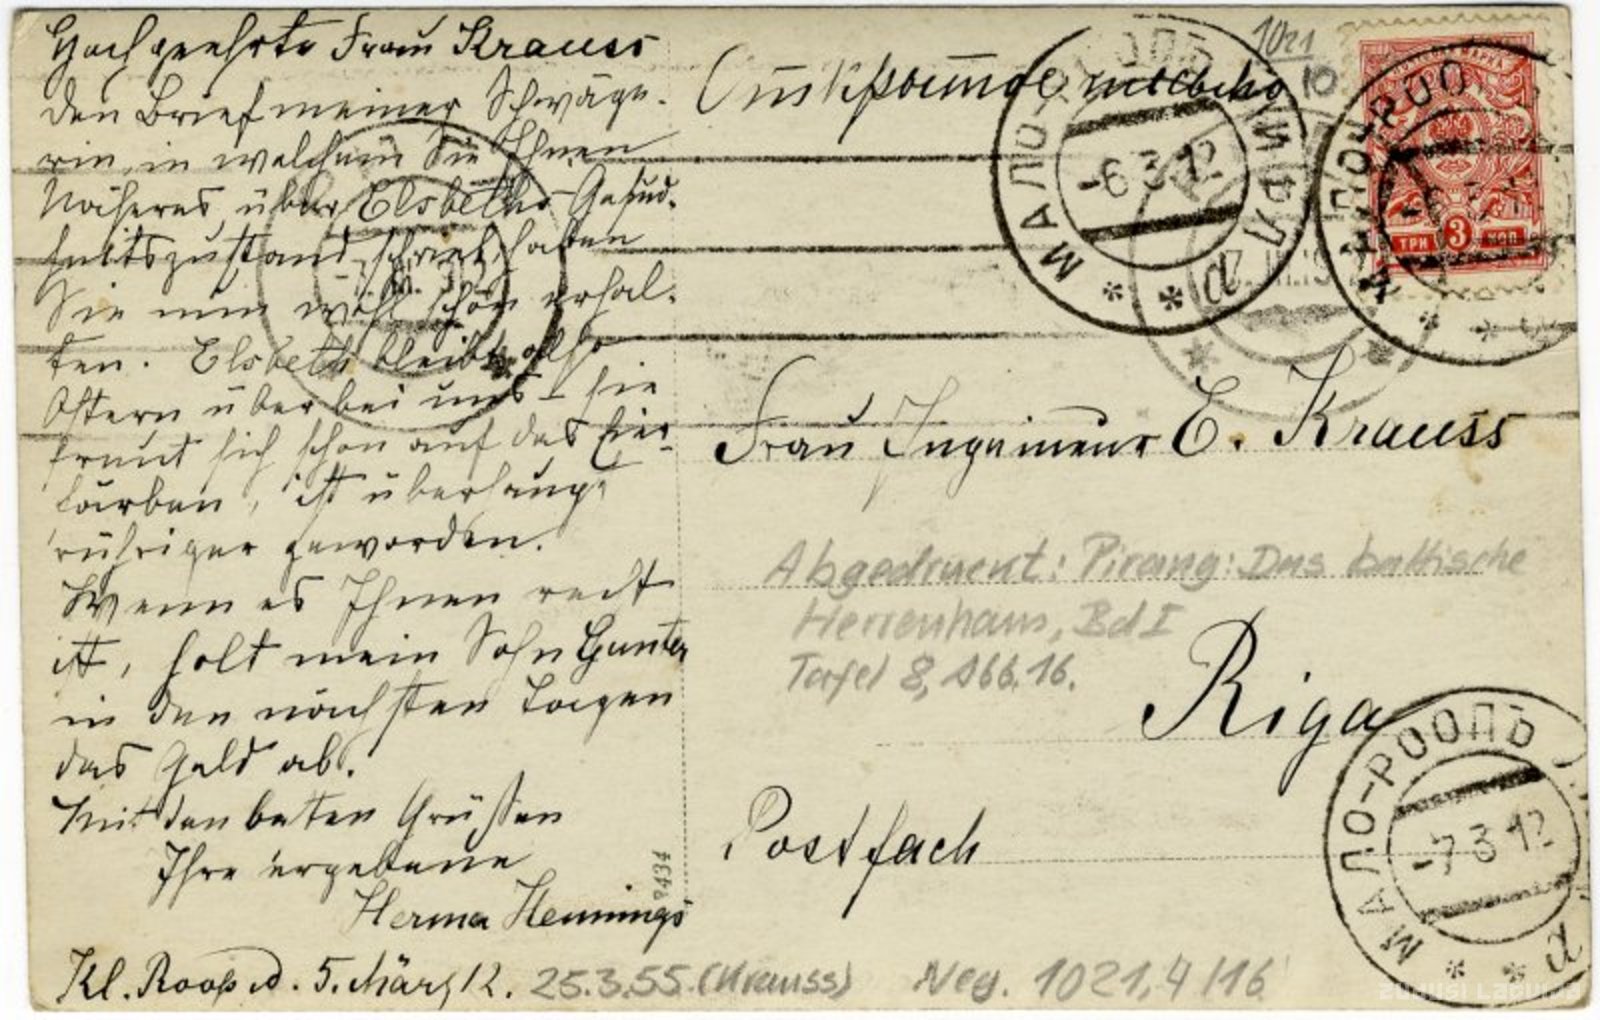 Hochgeehrte Frau Krauss
den Brief meiner Schwäge-
rin, in welchem Sie Ihnen
Näheres über Elsbeths Gesund-
heitszustand schrieb, haben
Sie nun wohl schon erhal-
ten. Elsbeth bleibt also
Ostern über bei uns – sie
freut sich schon auf das Eier-
färben, ist überhaupt
rühriger geworden.
Wenn es Ihnen recht
ist, holt mein Sohn Gunter
in den nächsten Tagen
das Geld ab.
Mit den besten Grüßen
Ihre ergebene
Herma Hennings
Kl. Roop d. 5. März 12.
1021
10
МАЛО-РООПЪ ЛИФЛ
-6 3 12
МАЛО-РООПЪ
ТРИ 3 КОП
Frau Ingenieur E. Krauss
Abgedruckt: Pirang: Das baltische
Herrenhaus, Bd I
Tafel 8, Abb. 16.
Riga
Postfach
МАЛО-РООПЪ
-7 3 12
P434
25.3.55. (Krauss) Neg. 1021,4/16
ZUDUSI LATVIJA